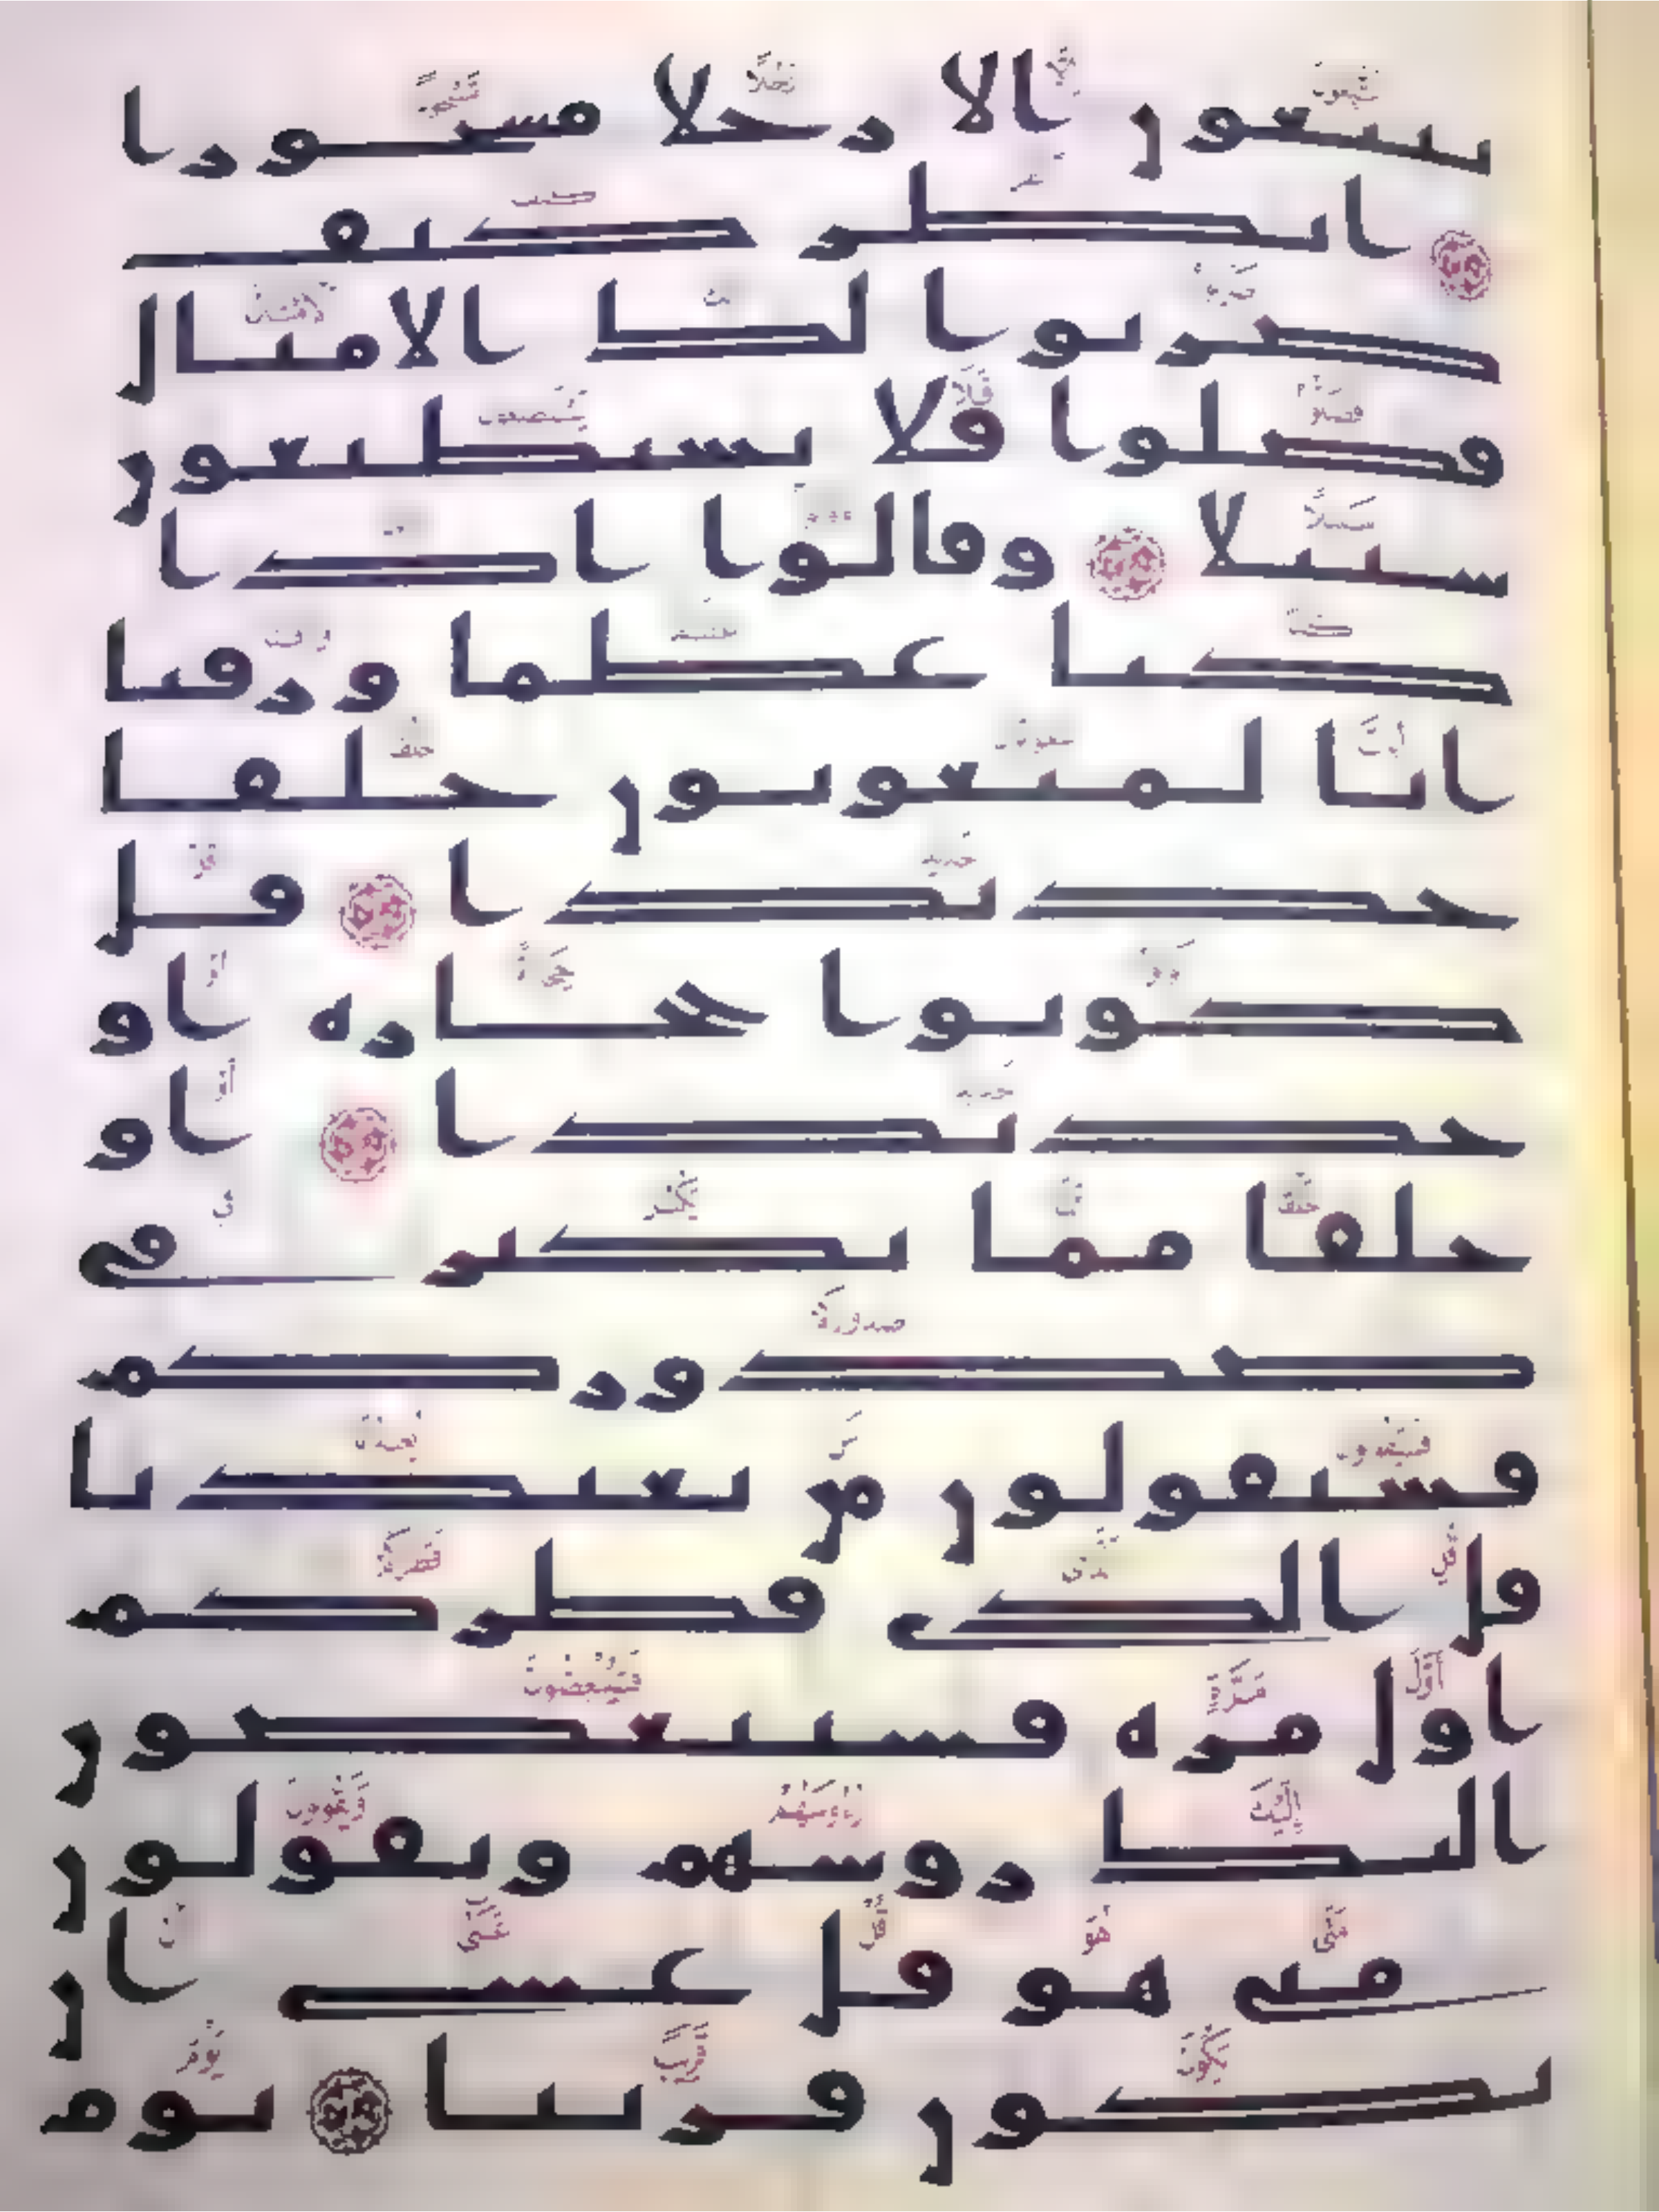 تتبعون الا رجلا مسحورا
انظر كيف
ضربوا لك الامثال
فضلوا فلا يستطيعون
سبيلا وقالوا اذا
كنا عظما ورفتا
انا لمبعوثون خلقا
جديدا قل
كونوا حجارة او
حديدا او
خلقا مما يكبر في
صدوركم
فسيقولون من يعيدنا
قل الذي فطركم
اول مرة فسينغضون
اليك روسهم ويقولون
متى هو قل عسى ان
يكون قريبا يوم